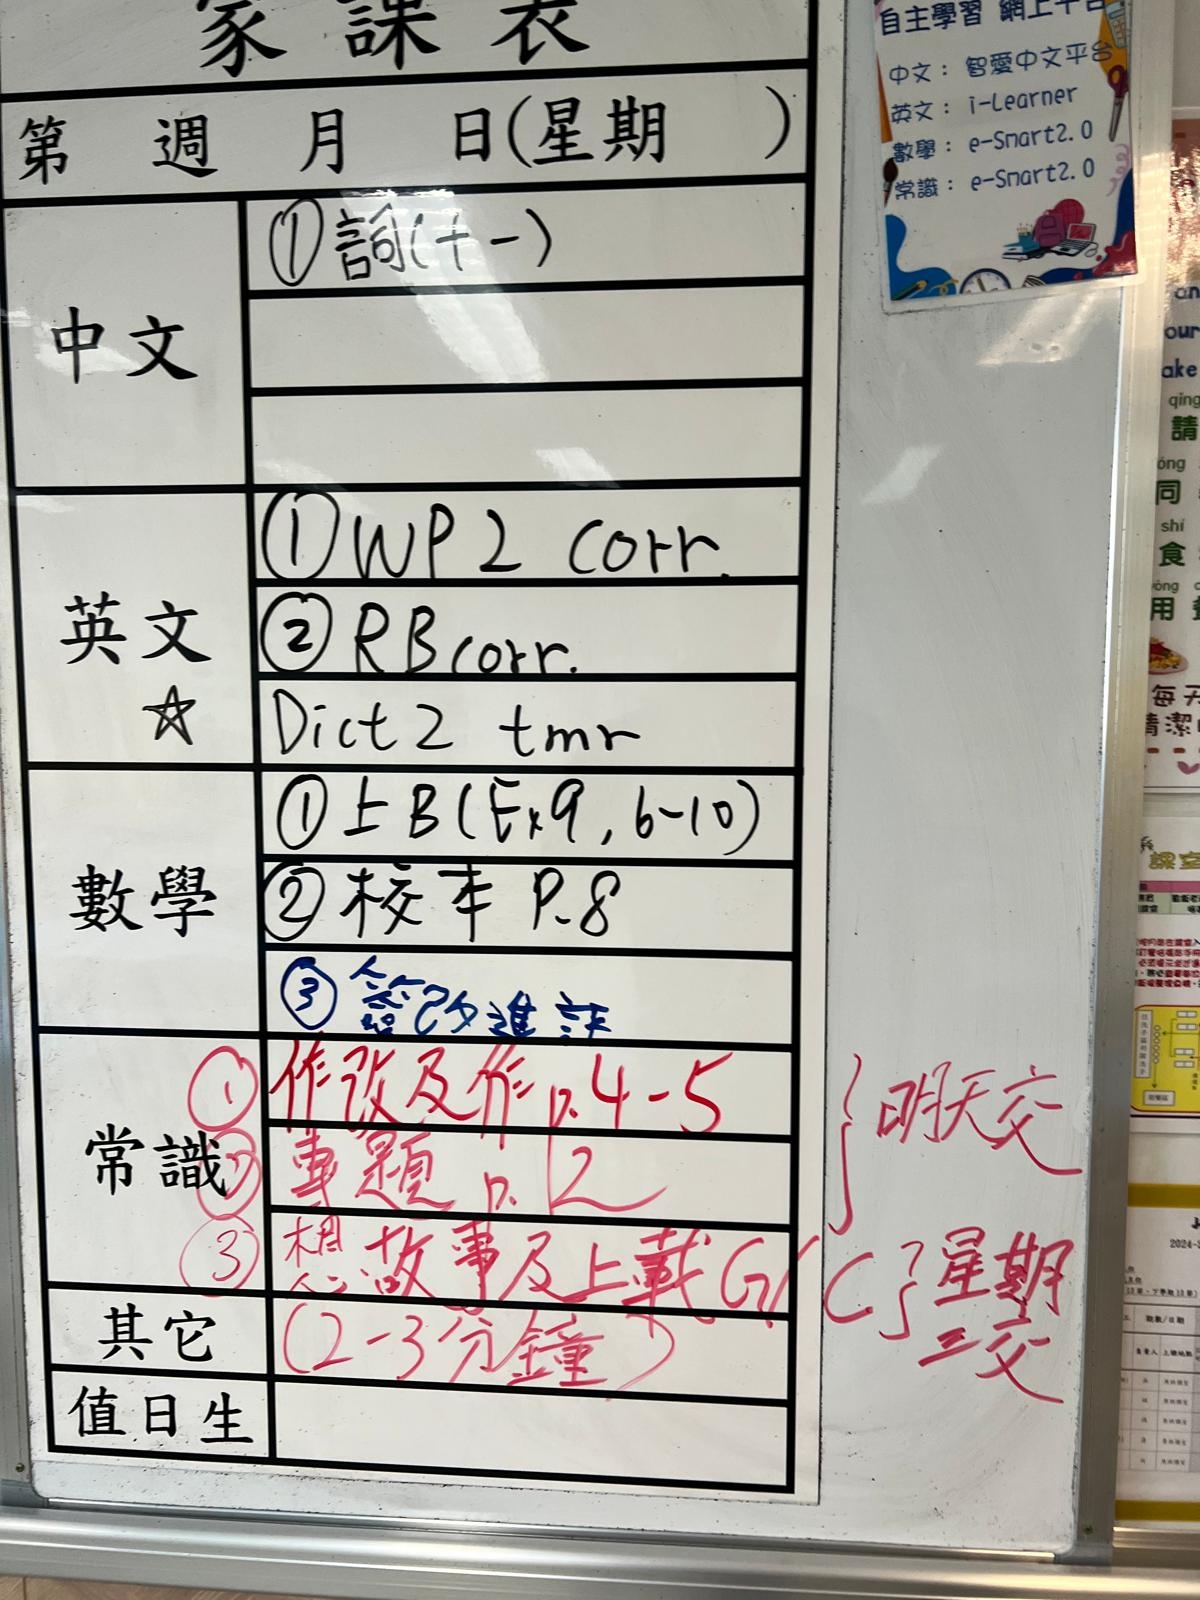 家課表
第 週 月 日(星期 )
中文
①詞(十一)
英文
☆
①WP2 corr.
②RB corr.
Dict2 tmr
數學
①上B(Ex9, 6-10)
②校本 P.8
③簽改進評
常識
①作改及作p.4-5
②專題 p.12
明天交
③構想故事及上載G/C
(2-3分鐘)
星期三交
其它
值日生
自主學習 網上平台
中文：智愛中文平台
英文：i-Learner
數學：e-Smart2.0
常識：e-Smart2.0
our
qǐng
請
同
shí
食
用
每天
清潔
課室
2024-